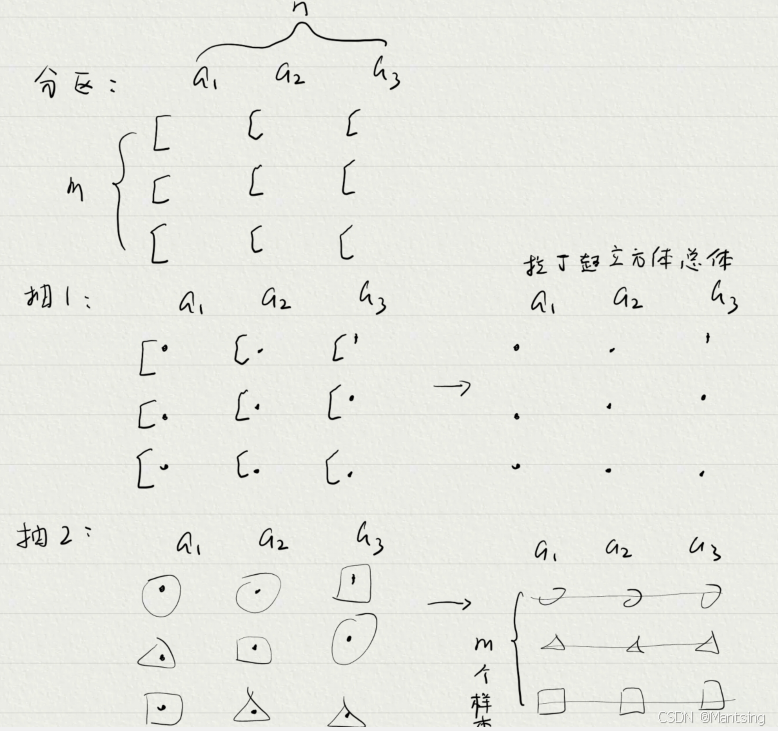 n
分区: a₁ a₂ a₃
m
拉丁超立方体总体
抽1: a₁ a₂ a₃ a₁ a₂ a₃
抽2: a₁ a₂ a₃ a₁ a₂ a₃
m个样本
CSDN @Mantsing